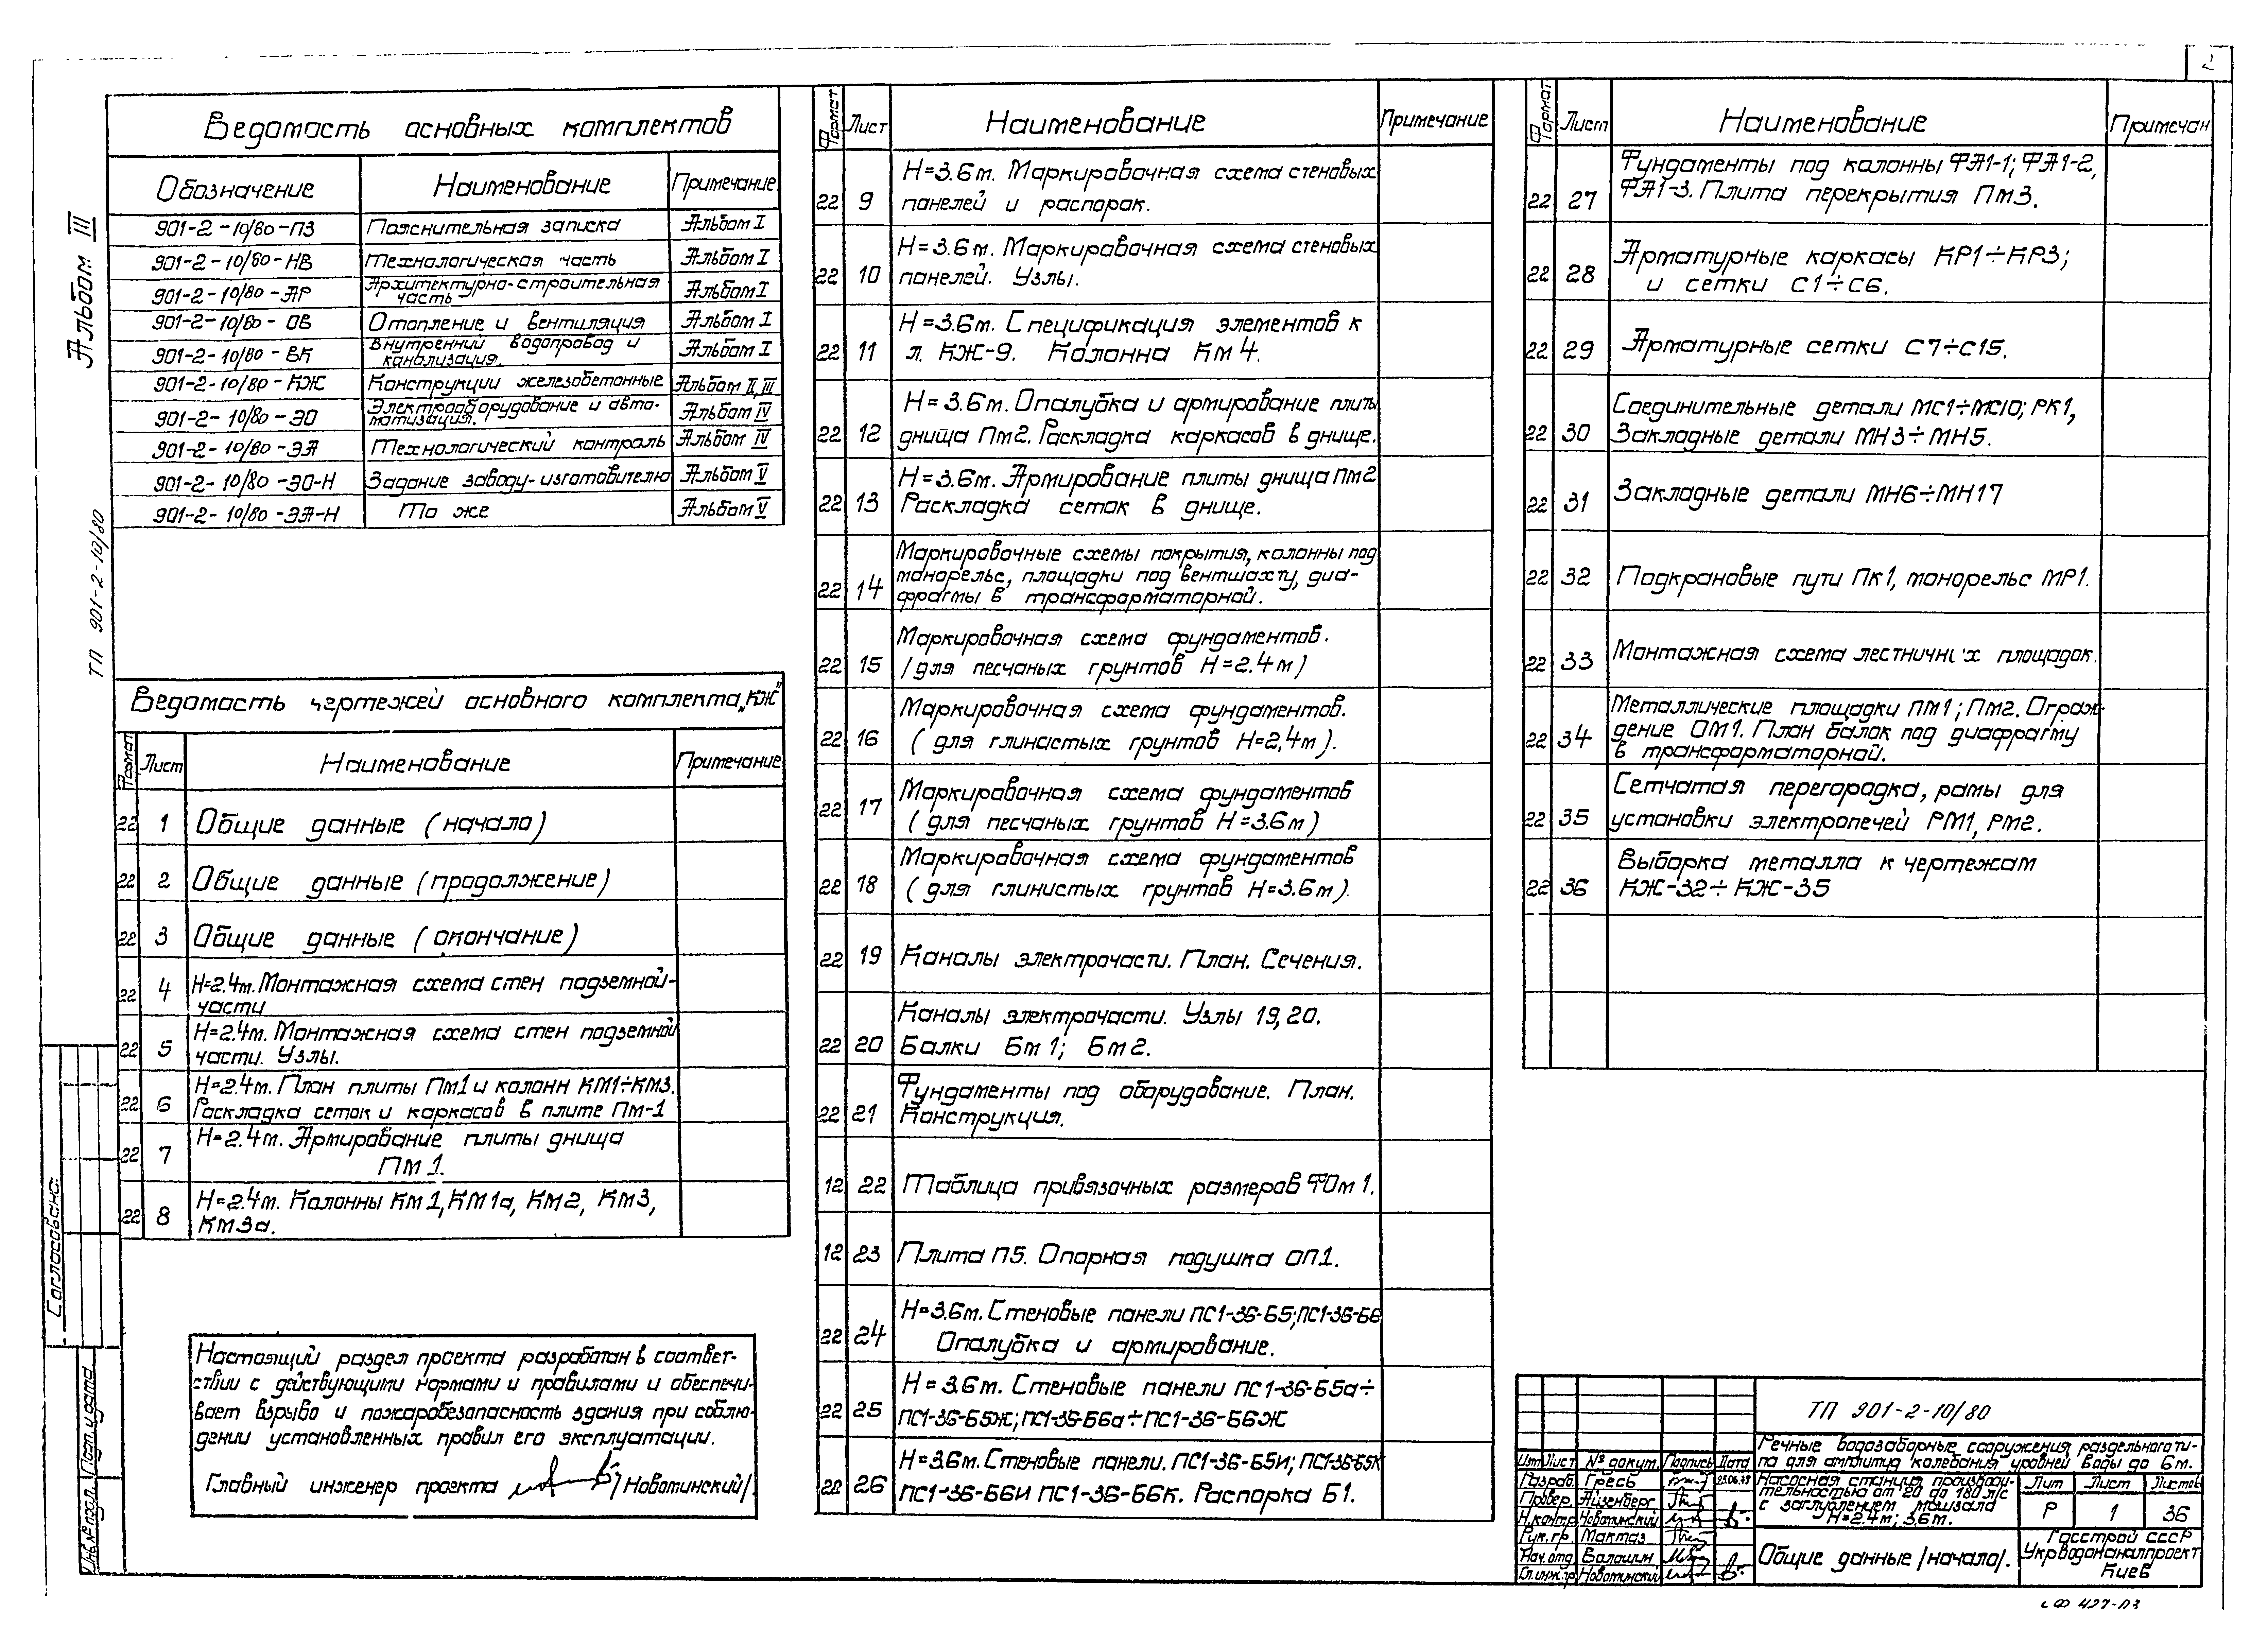 2
Альбом III
ТП 901-2-10/80
Ведомость основных комплектов
Обозначение Наименование Примечание
901-2-10/80-ПЗ Пояснительная записка Альбом I
901-2-10/80-НВ Технологическая часть Альбом I
901-2-10/80-АР Архитектурно-строительная часть Альбом I
901-2-10/80-ОВ Отопление и вентиляция Альбом I
901-2-10/80-ВК Внутренний водопровод и канализация. Альбом I
901-2-10/80-КЖ Конструкции железобетонные Альбом II, III
901-2-10/80-ЭО Электрооборудование и автоматизация. Альбом IV
901-2-10/80-ЭА Технологический контроль Альбом IV
901-2-10/80-ЭО-Н Задание заводу-изготовителю Альбом V
901-2-10/80-ЭА-Н То же Альбом V
Ведомость чертежей основного комплекта „КЖ"
Формат Лист Наименование Примечание
22 1 Общие данные (начало)
22 2 Общие данные (продолжение)
22 3 Общие данные (окончание)
22 4 Н=2.4м. Монтажная схема стен подземной-
части
22 5 Н=2.4м. Монтажная схема стен подземной
части. Узлы.
22 6 Н=2.4м. План плиты Пм1 и колонн КМ1÷КМ3.
Раскладка сеток и каркасов в плите Пм-1
22 7 Н=2.4м. Армирование плиты днища
ПМ1.
22 8 Н=2.4м. Колонны Км1, КМ1а, КМ2, КМ3,
КМ3а.
Настоящий раздел проекта разработан в соответ-
ствии с действующими нормами и правилами и обеспечи-
вает взрыво и пожаробезопасность здания при соблю-
дении установленных правил его эксплуатации.
Главный инженер проекта /Новотинский/.
Формат Лист Наименование Примечание
22 9 Н=3.6м. Маркировочная схема стеновых
панелей и распорок.
22 10 Н=3.6м. Маркировочная схема стеновых
панелей. Узлы.
22 11 Н=3.6м. Спецификация элементов к
л. КЖ-9. Колонна Км4.
22 12 Н=3.6м. Опалубка и армирование плиты
днища Пм2. Раскладка каркасов в днище.
22 13 Н=3.6м. Армирование плиты днища Пм2
Раскладка сеток в днище.
22 14 Маркировочные схемы покрытия, колонны под
монорельс, площадки под вентшахту, диа-
фрагмы в трансформаторной.
22 15 Маркировочная схема фундаментов.
/для песчаных грунтов Н=2.4м)
22 16 Маркировочная схема фундаментов.
(для глинастых грунтов Н=2,4м).
22 17 Маркировочная схема фундаментов
(для песчаных грунтов Н=3.6м)
22 18 Маркировочная схема фундаментов
(для глинистых грунтов Н=3.6м).
22 19 Каналы электрочасти. План. Сечения.
22 20 Каналы электрочасти. Узлы 19, 20.
Балки Бм1; Бм2.
22 21 Фундаменты под оборудование. План.
Конструкция.
12 22 Таблица привязочных размеров ФОм1.
12 23 Плита П5. Опорная подушка ОП1.
22 24 Н=3.6м. Стеновые панели ПС1-36-Б5; ПС1-36-Б6
Опалубка и армирование.
22 25 Н=3.6м. Стеновые панели ПС1-36-Б5а÷
ПС1-36-Б5Ж; ПС1-36-Б6а÷ПС1-36-Б6Ж
22 26 Н=3.6м. Стеновые панели. ПС1-36-Б5И; ПС1-36-Б5К
ПС1-36-Б6И ПС1-36-Б6К. Распорка Б1.
Формат Лист Наименование Примечан
22 27 Фундаменты под колонны ФА1-1; ФА1-2,
ФА1-3. Плита перекрытия Пм3.
22 28 Арматурные каркасы КР1÷КР3;
и сетки С1÷С6.
22 29 Арматурные сетки С7÷С15.
22 30 Соединительные детали МС1÷МС10; РК1,
Закладные детали МН3÷МН5.
22 31 Закладные детали МН6÷МН17
22 32 Подкрановые пути ПК1, монорельс МР1.
22 33 Монтажная схема лестничных площадок.
22 34 Металлические площадки ПМ1; Пм2. Ограж-
дение ОМ1. План балок под диафрагму
в трансформаторной.
22 35 Сетчатая перегородка, рамы для
установки электропечей РМ1, РМ2.
22 36 Выборка металла к чертежам
КЖ-32÷КЖ-35
Согласовано:
Инв.№ подл. Подп. и дата
ТП 901-2-10/80
Речные водозаборные сооружения раздельного ти-
па для амплитуд колебания уровней воды до 6м.
Изм Лист № докум. Подпись Дата
Разраб. Гресь 25.06.79
Провер. Айзенберг.
Н.контр. Новотинский
Рук.гр. Мактаз
Нач.отд. Волошин
Гл.инж.пр Новотинский
Насосная станция производи-
тельностью от 20 до 180 л/с
с заглублением машзала
Н=2.4м; 3.6м.
Лит Лист Листов
Р 1 36
Общие данные /начало/.
Госстрой СССР
Укрводоканалпроект
Киев
СФ 427-03